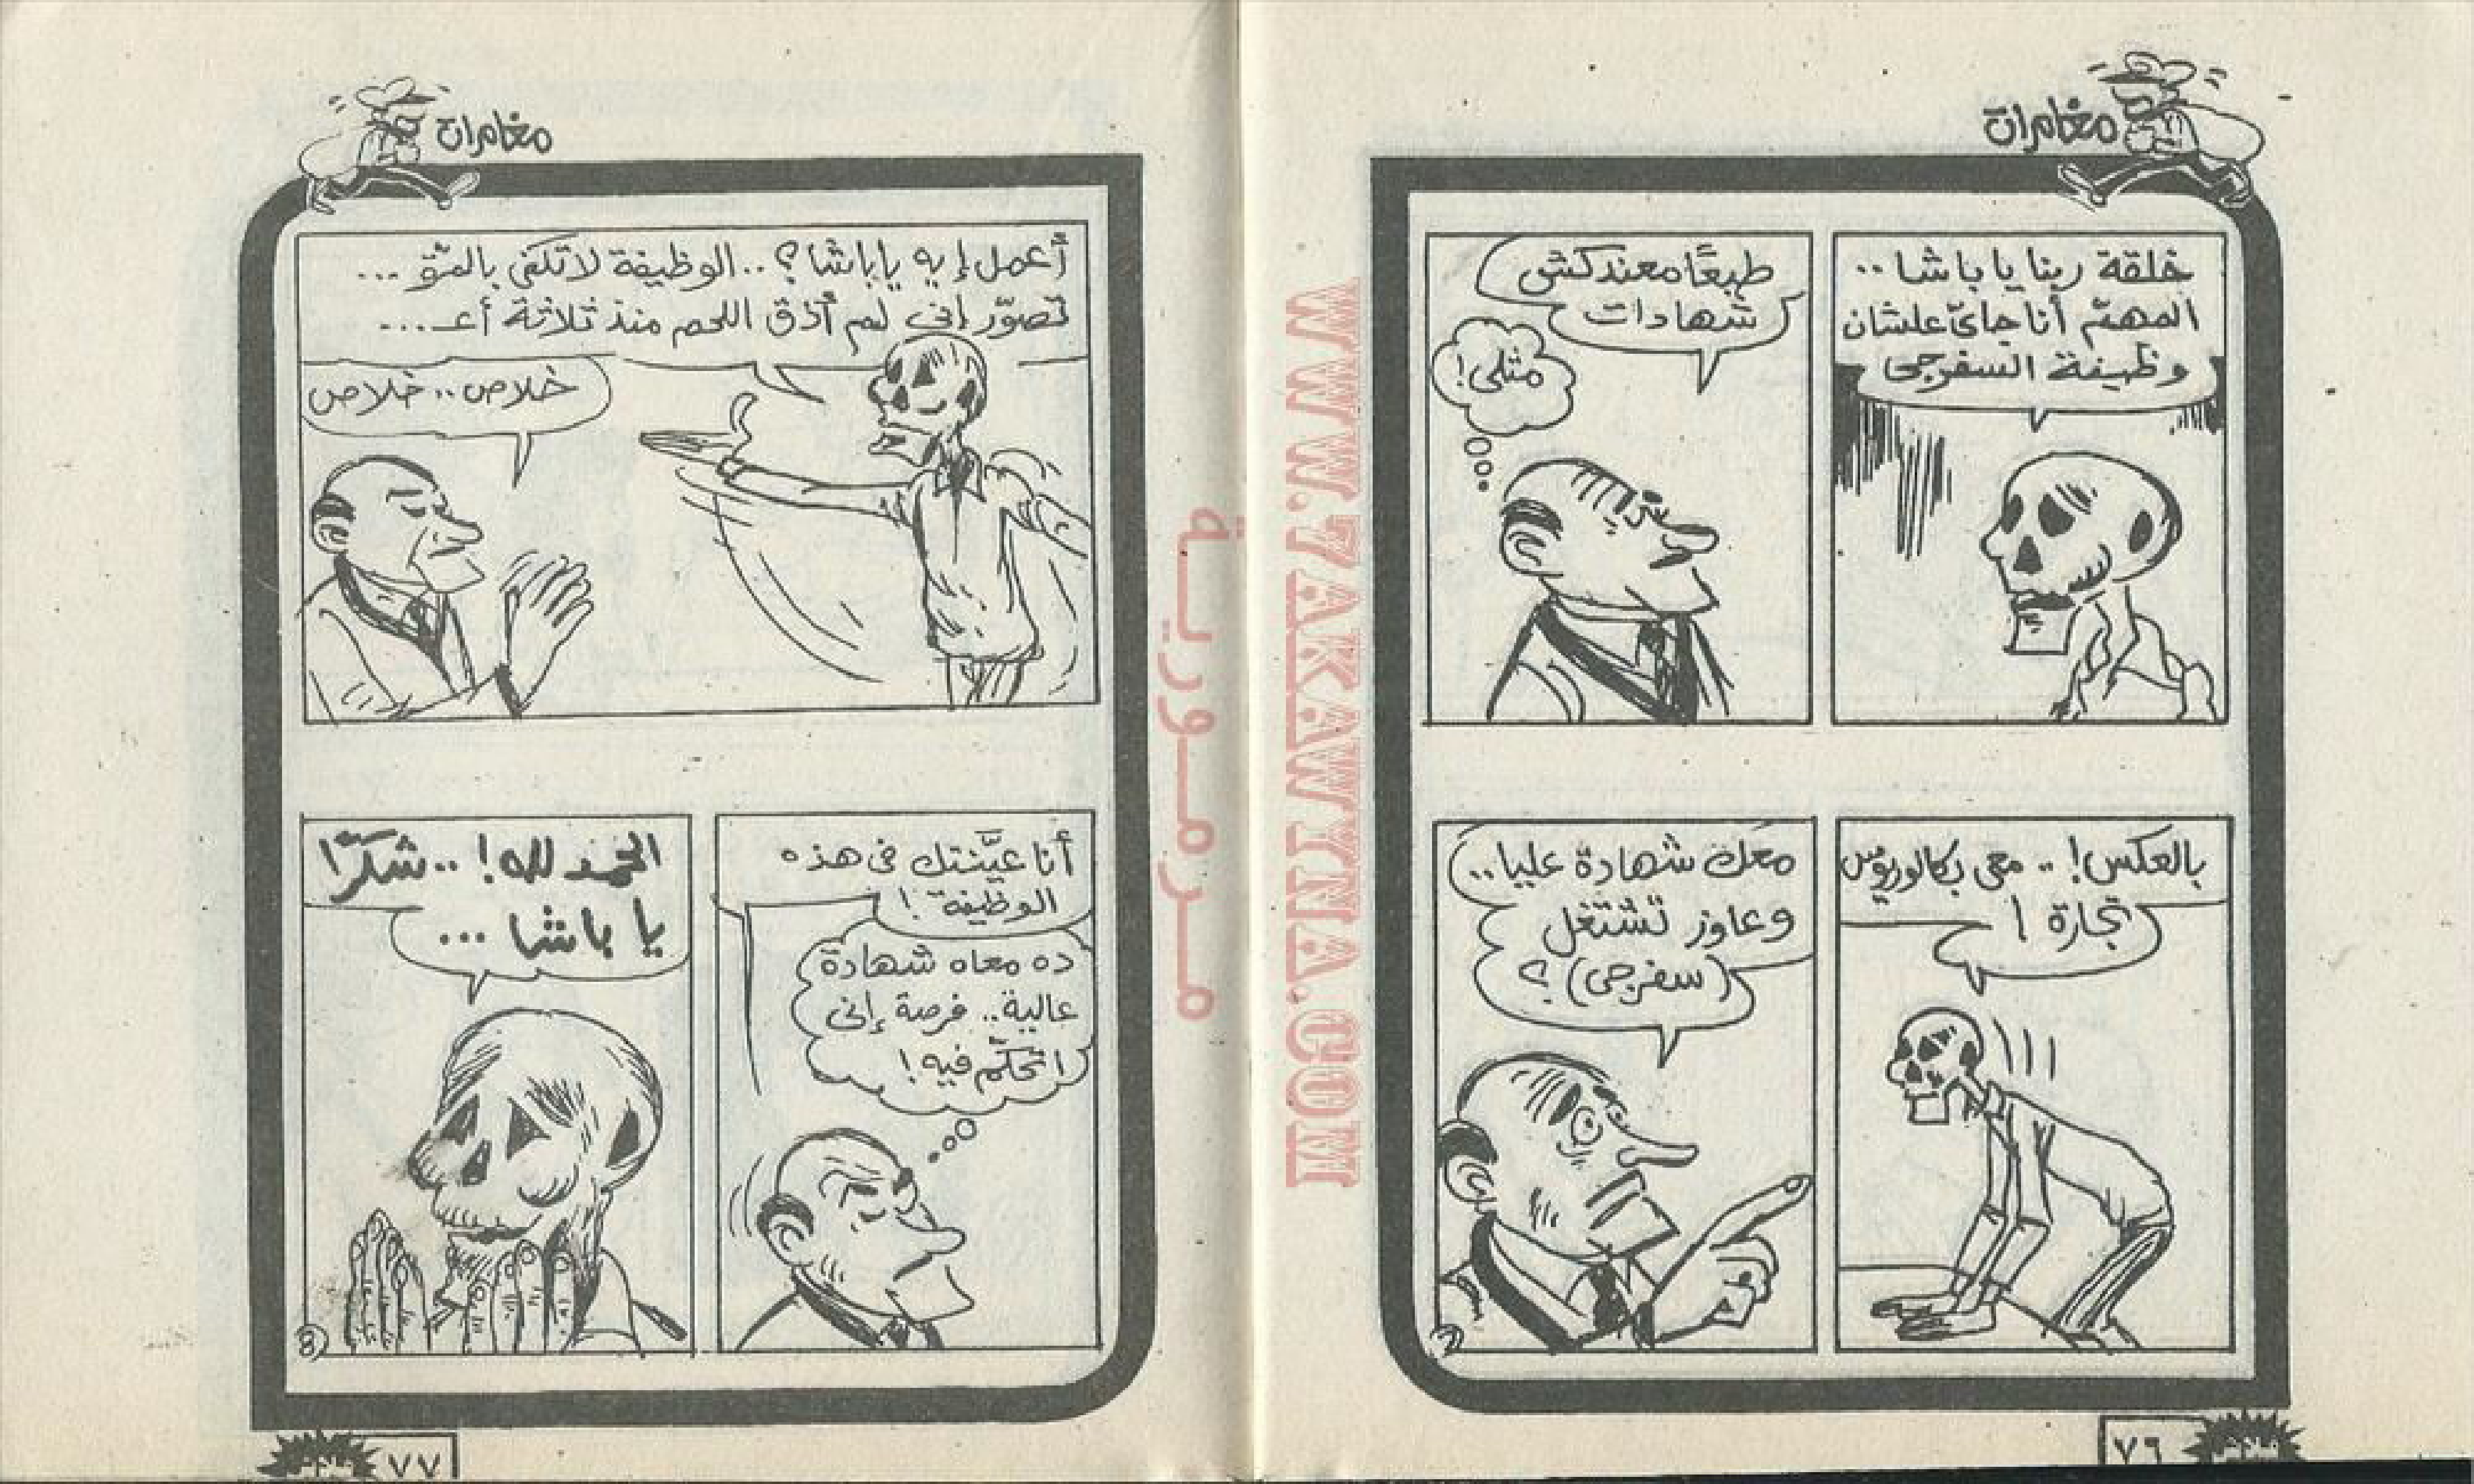 مغامرات
خلقة ربنا يا باشا ..
المهم أنا جاىّ علشان
وظيفة السفرجى
طبعًا معندكش
شهادات
مثلى!
بالعكس! .. معى بكالوريوس
تجارة !
معك شهادة عليا ..
وعاوز تشتغل
(سفرجى) ؟
٧٦
مغامرات
أعمل إيه يا باشا ؟ .. الوظيفة لا تكفى بالمرّة ...
تصوّر إنى لم أذق اللحم منذ ثلاثة أعـ ....
خلاص .. خلاص
أنا عيّنتك فى هذه
الوظيفة !
ده معاه شهادة
عالية .. فرصة إنى
اتحكّم فيه !
الحمد لله ! .. شكرًا
يا باشا ...
8
٧٧
WWW.7AKAWYNA.COM
مرمورية